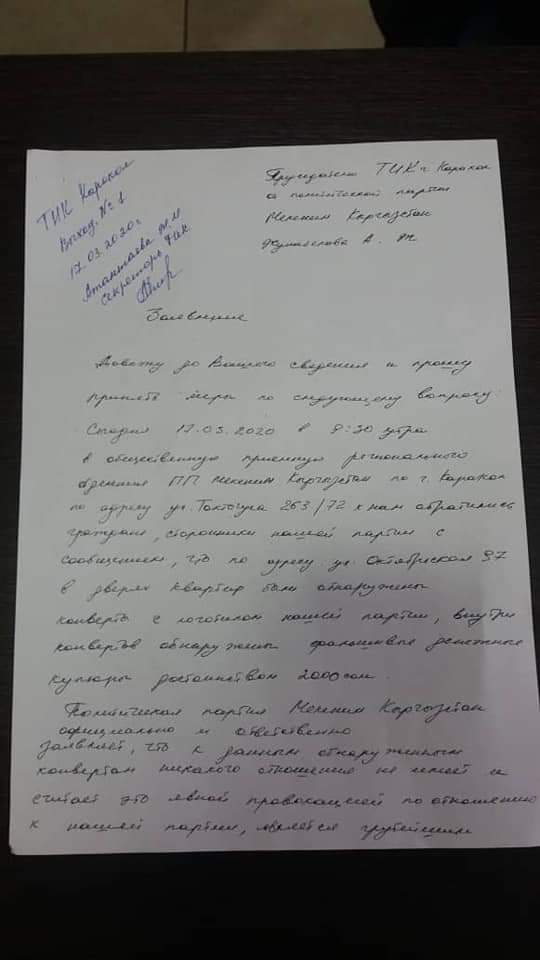 ТИК Каракол
Выход. № 1
17.03.2020г
секретарь тик
Председателю ТИК г Каракол
политической партии
Мекеним Кыргызстан
А. Ж
Заявление
Довожу до Вашего сведения и прошу
принять меры по следующему вопросу
Сегодня 17.03.2020 в 8:30 утра
в общественную приемную регионального
ПП Мекеним Кыргызстан по г. Каракол
по адресу ул. Токтогула 263/72 к нам обратились
граждане, сторонники нашей партии с
сообщением, что по адресу ул. Октябрьская 97
в дверях квартир были обнаружены
конверты с логотипом нашей партии, внутри
конвертов обнаружены фальшивые денежные
купюры достоинством 2000 сом.
Политическая партия Мекеним Кыргызстан
официально и ответственно
заявляет, что к данным обнаруженным
конвертам никакого отношения не имеет и
считает это явной провокацией по отношению
к нашей партии, является грубейшим